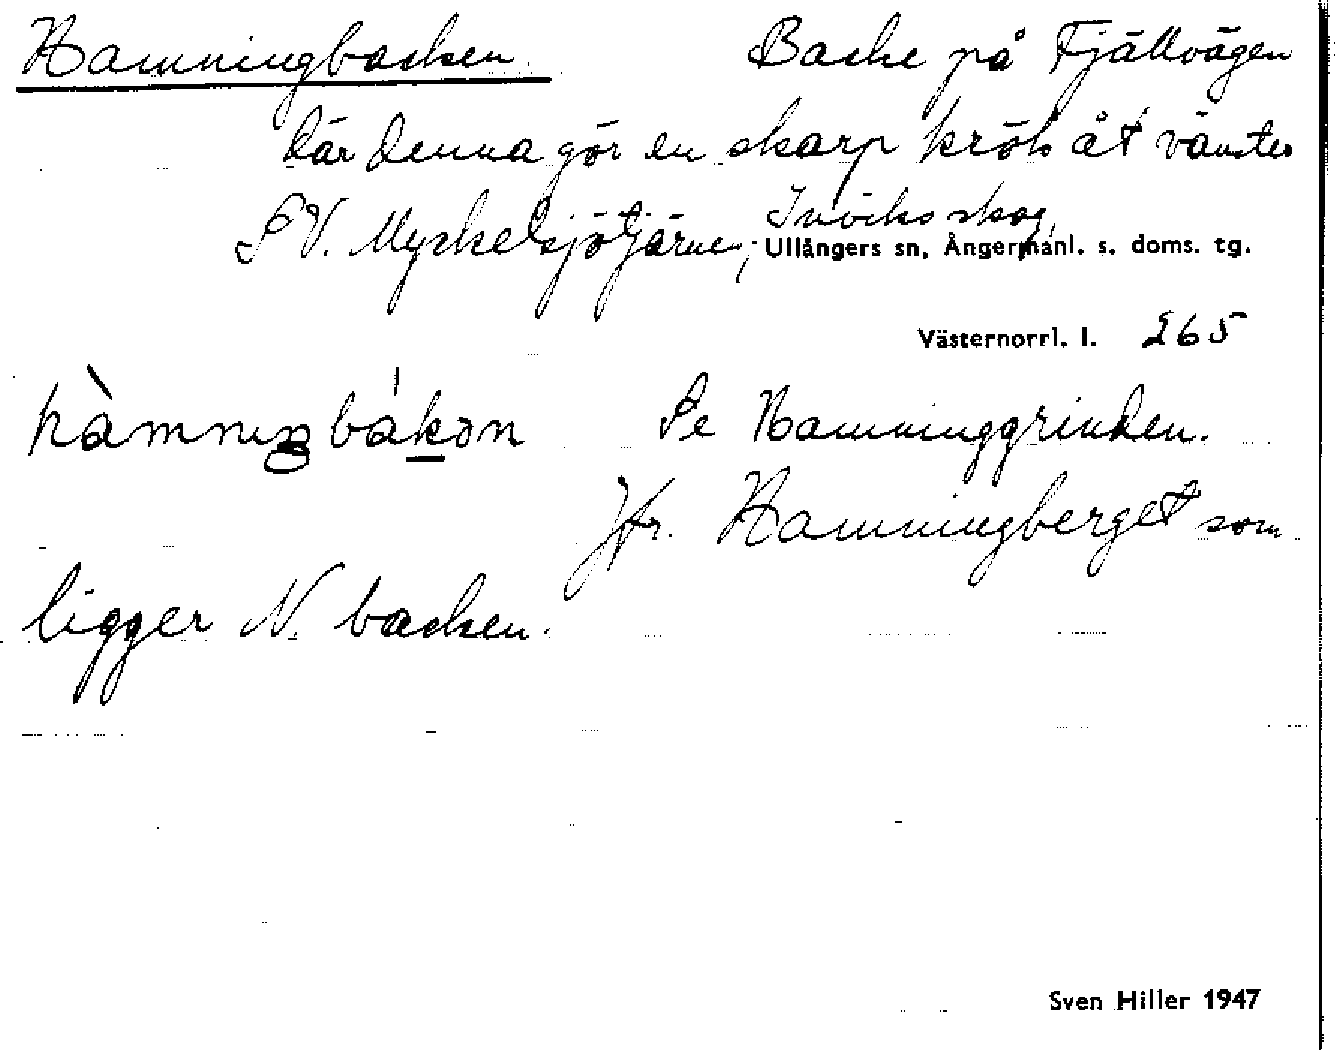 Hamningbacken Backe på Fjällvägen
där denna gör en skarp krök åt vänster
SV. Myckelsjötjärnen, Inviks skog,
Ullångers sn, Ångermanl. s. doms. tg.
Västernorrl. l. 265
hàmnıŋbákən Se Hamninggrinden.
Jfr. Hamningberget som
ligger N. backen.
Sven Hiller 1947